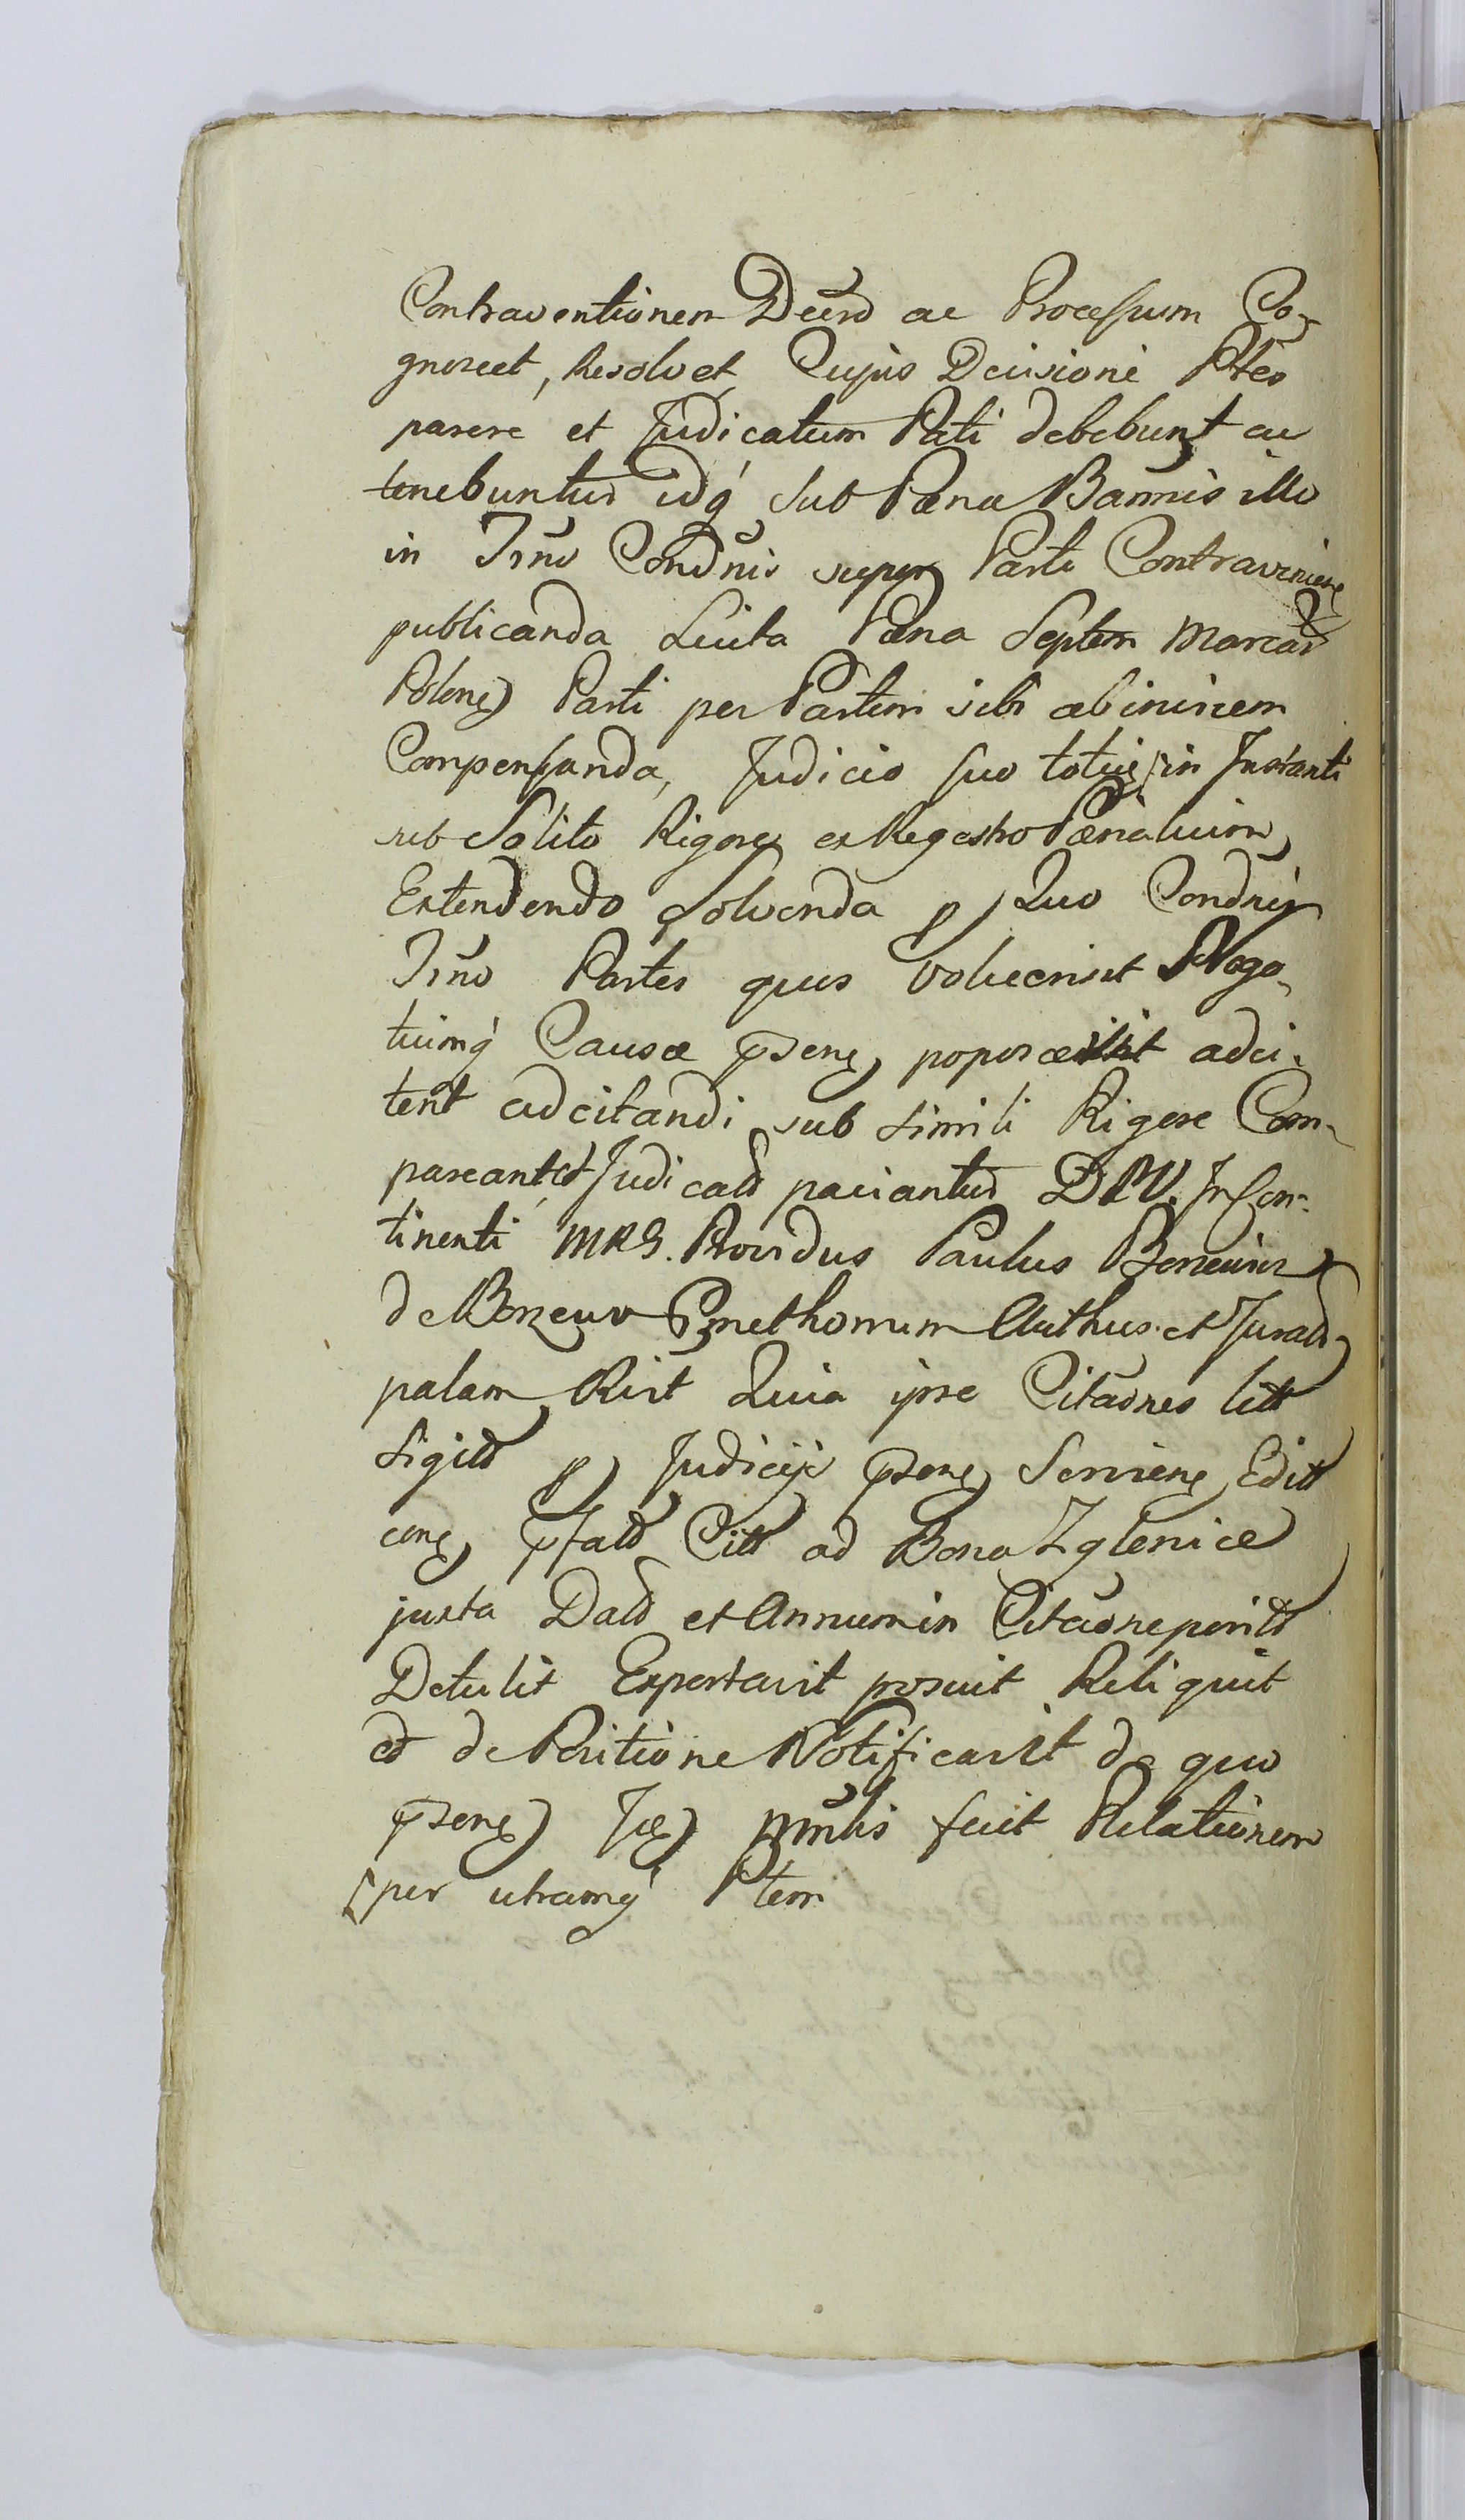 Contraventionem Decrd ac Processum Co-
gnoscet, Resolvet, Cujus Decisioni Ptes
parere et Judicatum Pati debebunt ac
tenebuntur idq́ sub Pæna Bannis illo
in Trno Condnis super Parte Contravenien
publicanda Luita Pæna Septem Marcar
Polon Parti per Partem sibi abinvicem
Compensanda, Judicio suo toties in Instanti
sub Solito Rigore ex Regestro Pænalium
Extendendo Solvenda p Quo Condnis
Trno Partes quas voluerint Nego-
tiumq́ Causæ pren poposcerit adci-
tent adcitandi sub simili Rigore Com-
pareant, et Judicatd paciantur DPV. In Con-
tinenti MRS. Providus Paulus
de Kmethonum Authus. et Juratd
palam Rit Quia ipse Citaones litt
Sigill p Judicij pren Edit
pfatd Citt ad Bona Zglenice
juxta Datd et Annum in Citaone positt
Detulit Exportavit posuit Reliquit
et de Positione Notificavit de quo
pren fecit Relationem
per utramq́ Ptem